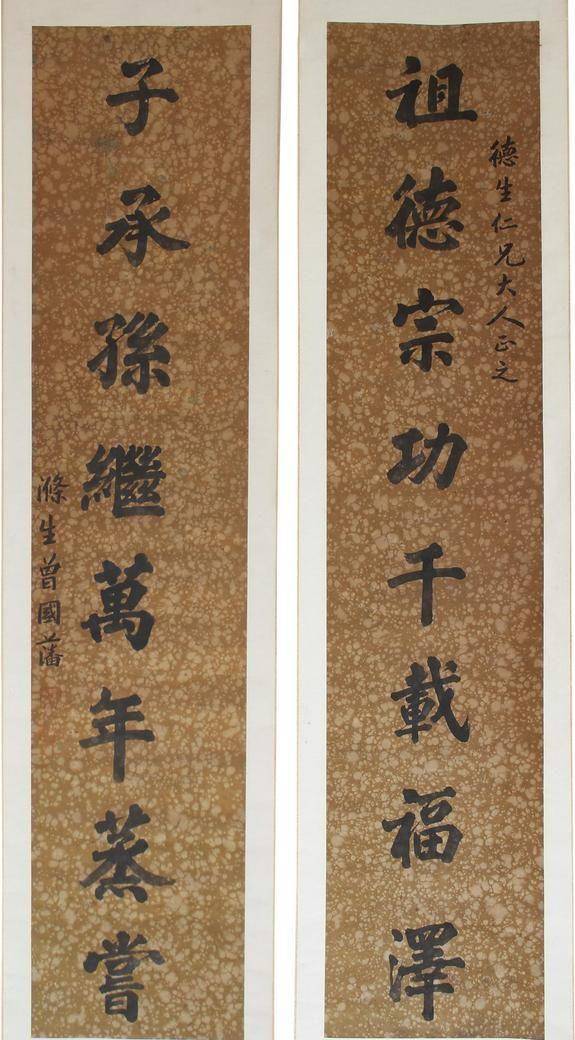 德生仁兄大人正之
祖德宗功千載福澤
子承孫繼萬年蒸嘗
滌生曾國藩